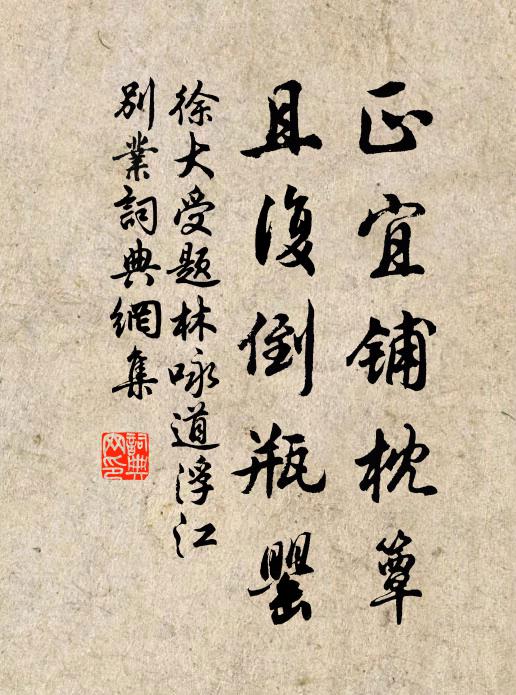 正宜铺枕簟
且復倒瓶罂
徐大受题林咏道浮江
别業詞典網集
詞典网印